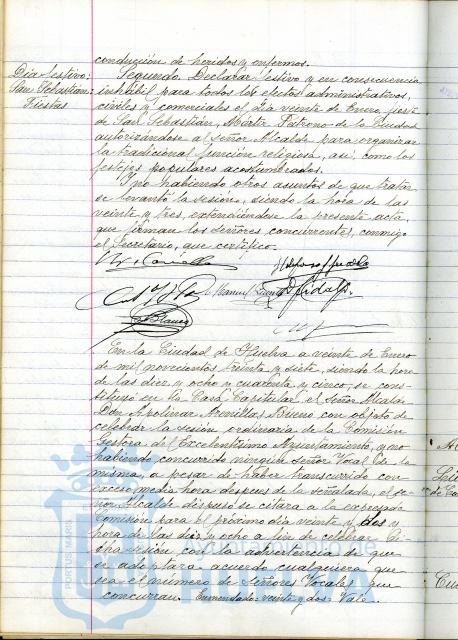 conducción de heridos y enfermos.
Día festivo:
San Sebastián:
Fiestas
Segundo. Declarar festivo y en consecuencia
inhábil para todos los efectos administrativos,
civiles y comerciales el día veinte de Enero,
de San Sebastián, Mártir Patrono de la Ciudad
autorizándose al señor Alcalde para organizar
la tradicional función religiosa, así como los
festejos populares acostumbrados.
Y no habiendo otros asuntos de que tratar
se levantó la sesión, siendo la hora de las
veinte y tres, extendiéndose la presente acta,
que firman los señores concurrentes, conmigo
el Secretario, que certifico.
En la Ciudad de Huelva a veinte de Enero
de mil novecientos treinta y siete, siendo la hora
de las diez y ocho y cuarenta y cinco, se cons-
tituyó en la Casa Capitular el señor Alcalde
Don Apolinar Arenillas Bueno con objeto de
celebrar la sesión ordinaria de la Comisión
Gestora del Excelentísimo Ayuntamiento, y no
habiendo concurrido ningún señor Vocal de la
misma, a pesar de haber transcurrido con
exceso media hora después de la señalada, el se-
ñor Alcalde dispuso se citara a la expresada
Comisión para el próximo día veinte y dos y
hora de las diez y ocho a fin de celebrar di-
cha sesión con la advertencia de que
se adoptara acuerdo cualquiera que
sea el número de Señores Vocales que
concurran. Enmendado: veinte y dos Vale.
PORTUS MARIS